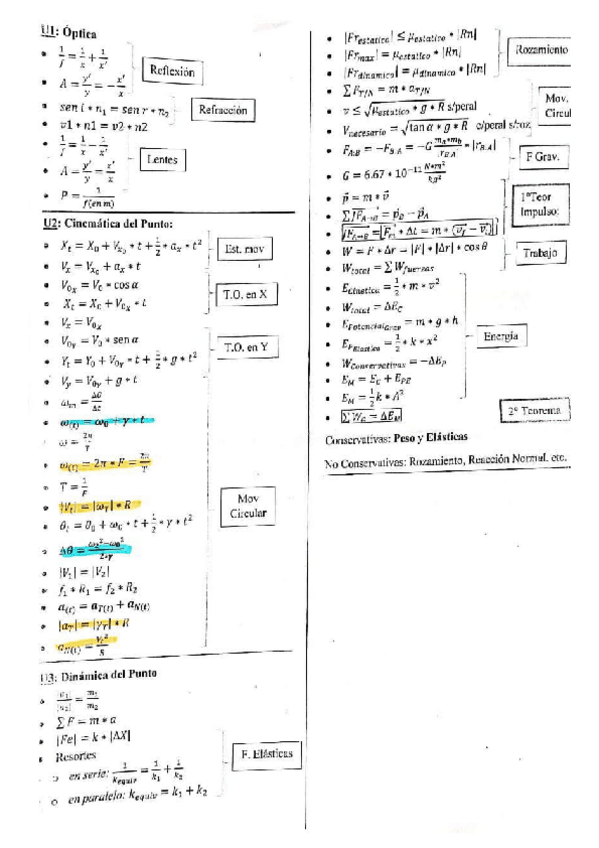 U1: Óptica
1/f = 1/x + 1/x'
A = y'/y = - x'/x
Reflexión
sen i * n₁ = sen r * n₂
Refracción
v1 * n1 = v2 * n2
1/f = 1/x - 1/x'
A = y'/y = x'/x
Lentes
P = 1/f(en m)
U2: Cinemática del Punto:
Xₜ = X₀ + Vₓ₀ * t + 1/2 * aₓ * t²
Vₓ = Vₓ₀ + aₓ * t
Est. mov
V₀ₓ = V₀ * cos α
Xₜ = X₀ + V₀ₓ * t
T.O. en X
Vₓ = V₀ₓ
V₀ᵧ = V₀ * sen α
Yₜ = Y₀ + V₀ᵧ * t + 1/2 * g * t²
T.O. en Y
Vᵧ = V₀ᵧ + g * t
ωₘ = Δθ/Δt
ω(t) = ω₀ + γ * t
ω = 2π/T
ω(t) = 2π * F = 2π/T
T = 1/F
|Vₜ| = |ω_T| * R
θₜ = θ₀ + ω₀ * t + 1/2 * γ * t²
Mov
Circular
Δθ = (ω₂² - ω₀²)/(2*γ)
|V₁| = |V₂|
f₁ * R₁ = f₂ * R₂
a(t) = a_T(t) + a_N(t)
|a_T| = |γ_T| * R
a_N(t) = Vₜ²/R
U3: Dinámica del Punto
m₁/m₂
∑F = m * a
|Fe| = k * |ΔX|
Resortes
F. Elásticas
en serie: 1/k_equiv = 1/k₁ + 1/k₂
en paralelo: k_equiv = k₁ + k₂
|Fr_estatico| ≤ μ_estatico * |Rn|
|Fr_max| = μ_estatico * |Rn|
Rozamiento
|Fr_dinamico| = μ_dinamico * |Rn|
∑F_T/N = m * a_T/N
v ≤ √(μ_estatico * g * R) s/peral
Mov.
Circul
V_necesario = √(tan α * g * R) c/peral s/roz
F_A;B = -F_B;A = -G (m_a*m_b)/|r_BA|³ * |r_B.A|
F Grav.
G = 6.67 * 10⁻¹¹ N*m²/kg²
p⃗ = m * v⃗
1ºTeor
Impulso:
∑J F_A→B = p⃗_B - p⃗_A
J F_A→B = Fₘ * Δt = m * (v_f - v_i)
W = F * Δr = |F| * |Δr| * cos θ
Trabajo
W_total = ∑ W_fuerzas
E_Cinetica = 1/2 * m * v²
W_total = ΔE_C
E_PotencialGrav = m * g * h
Energía
E_PElastica = 1/2 * k * x²
W_Conservativas = -ΔE_P
E_M = E_C + E_PE
E_M = 1/2 k * A²
2º Teorema
Conservativas: Peso y Elásticas
No Conservativas: Rozamiento, Reacción Normal, etc.